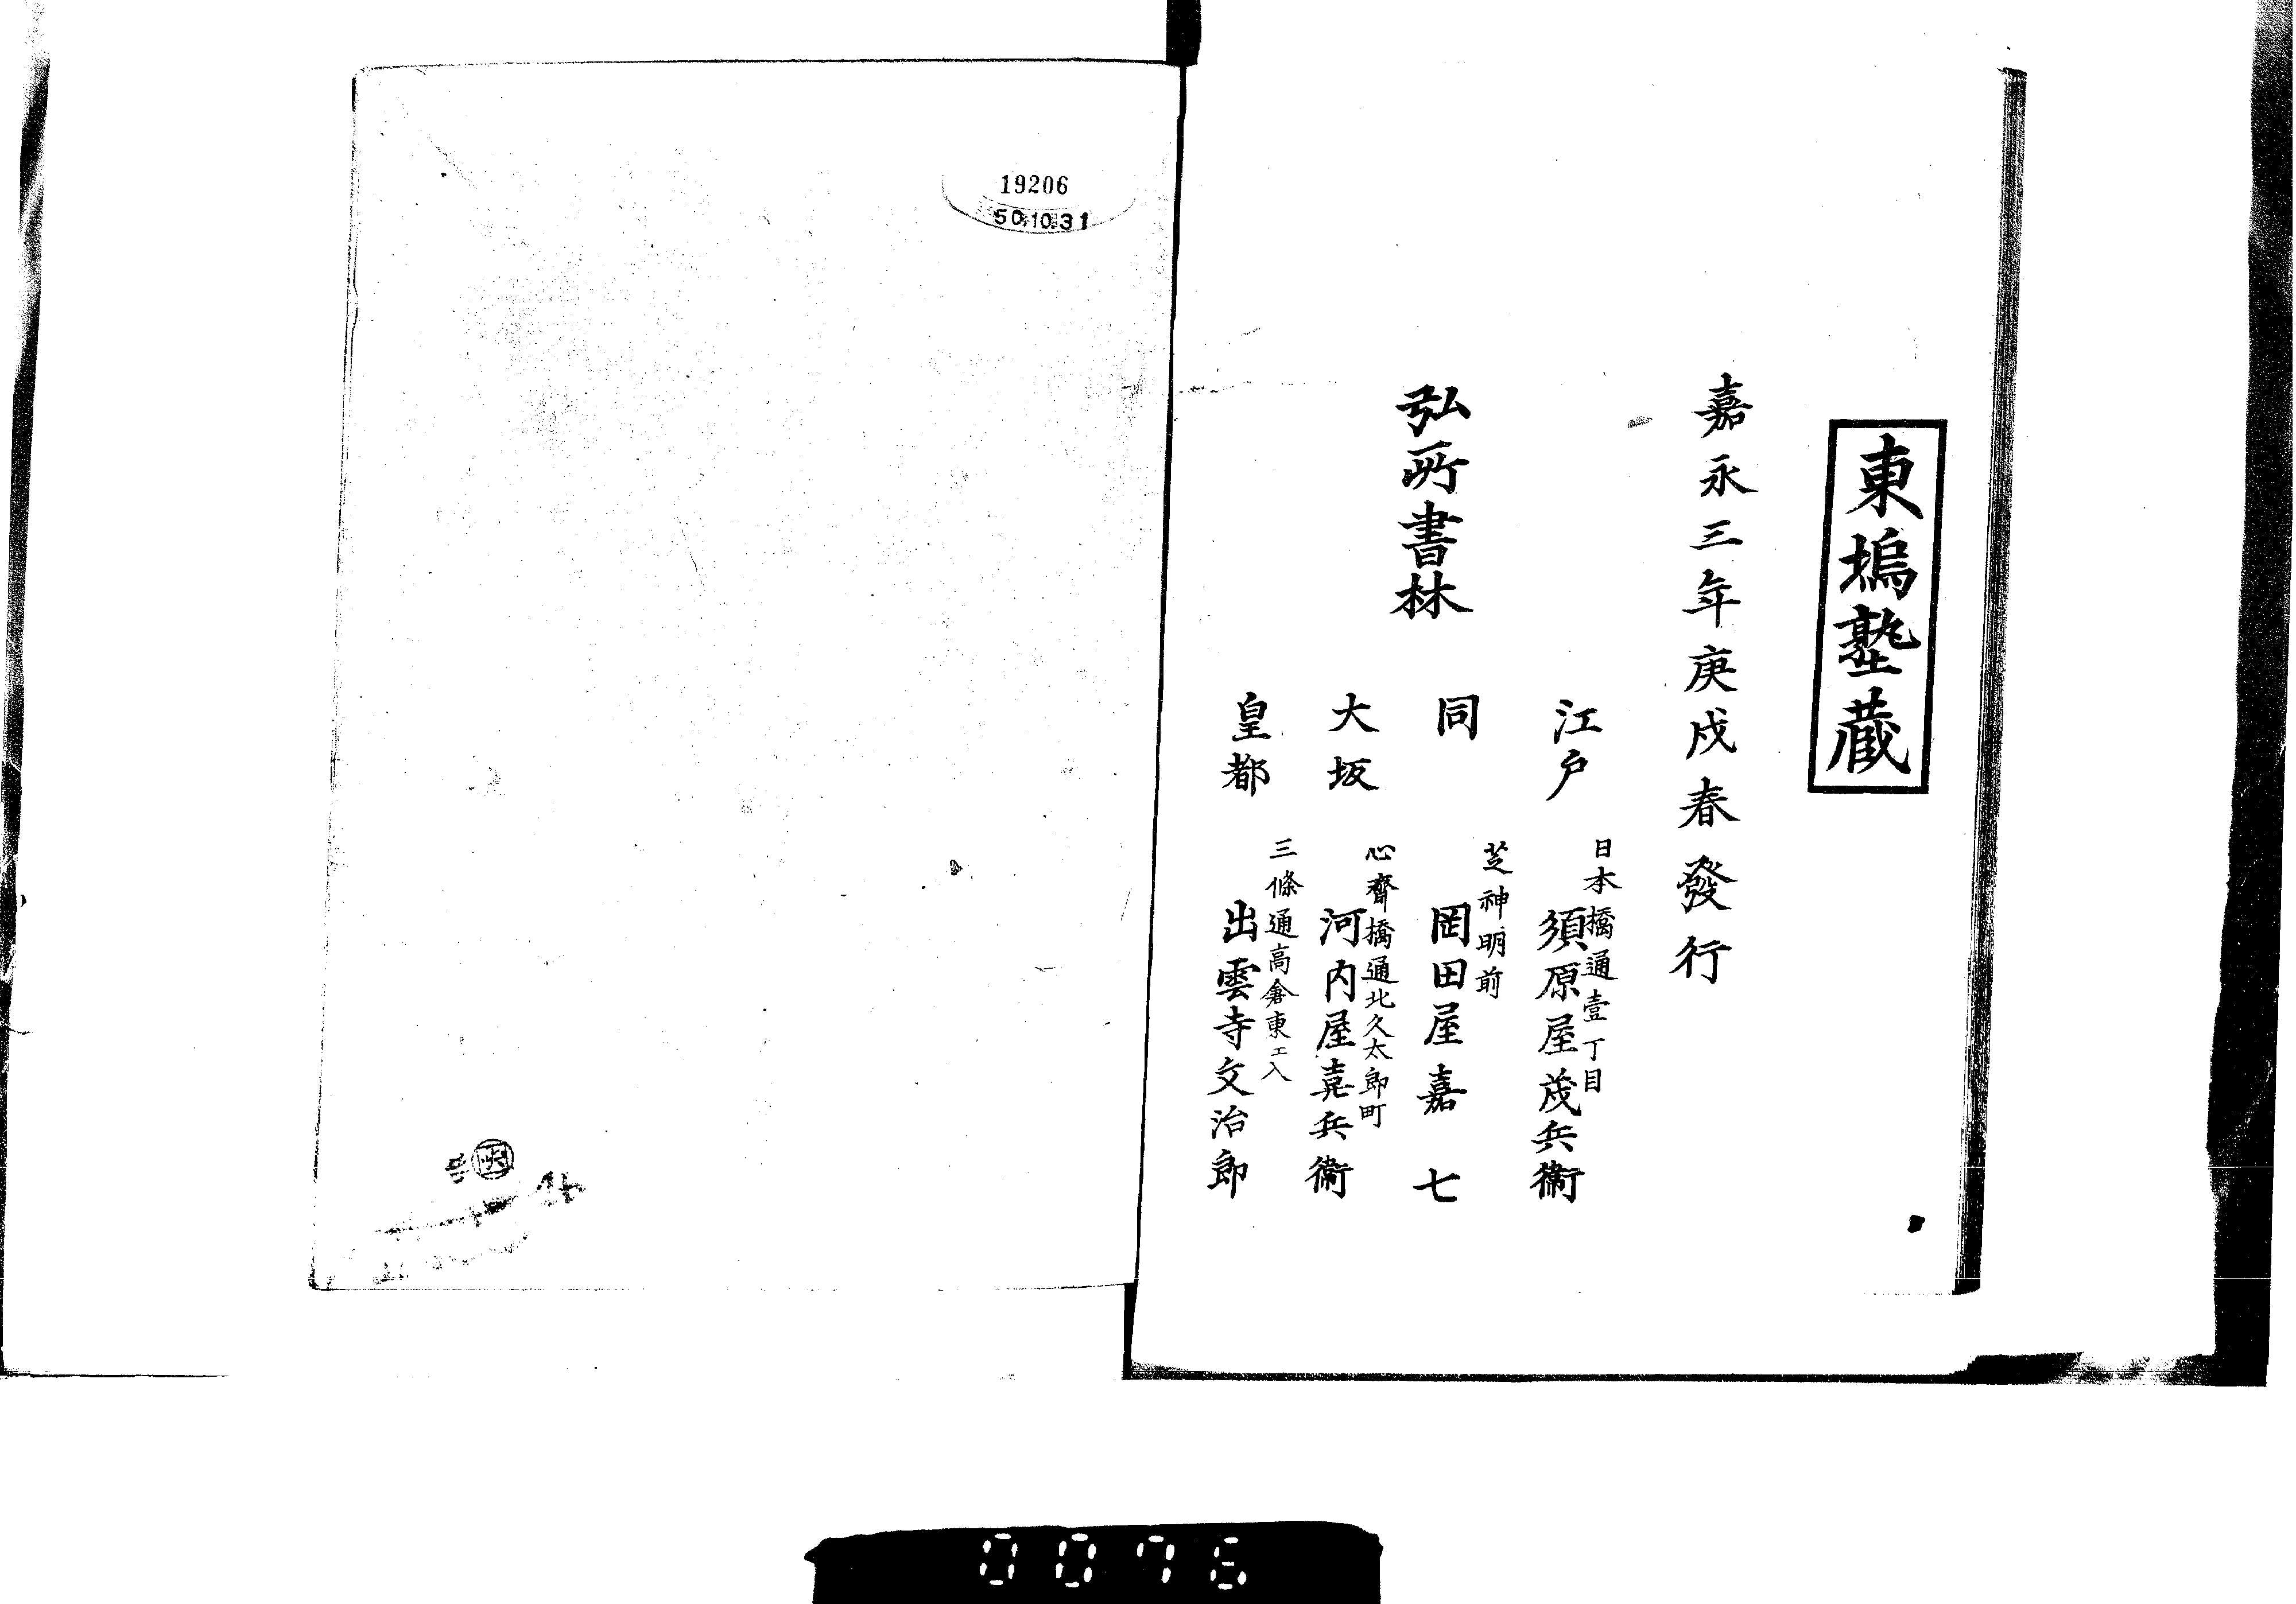 東塢塾蔵
嘉永三年庚戌春發行
弘所書林
江戸
日本橋通壹丁目
須原屋茂兵衞
同
芝神明前
岡田屋嘉七
大坂
心齋橋通北久太郎町
河内屋喜兵衞
皇都
三條通高倉東エ入
出雲寺文治郎
19206
50.10.31
0076